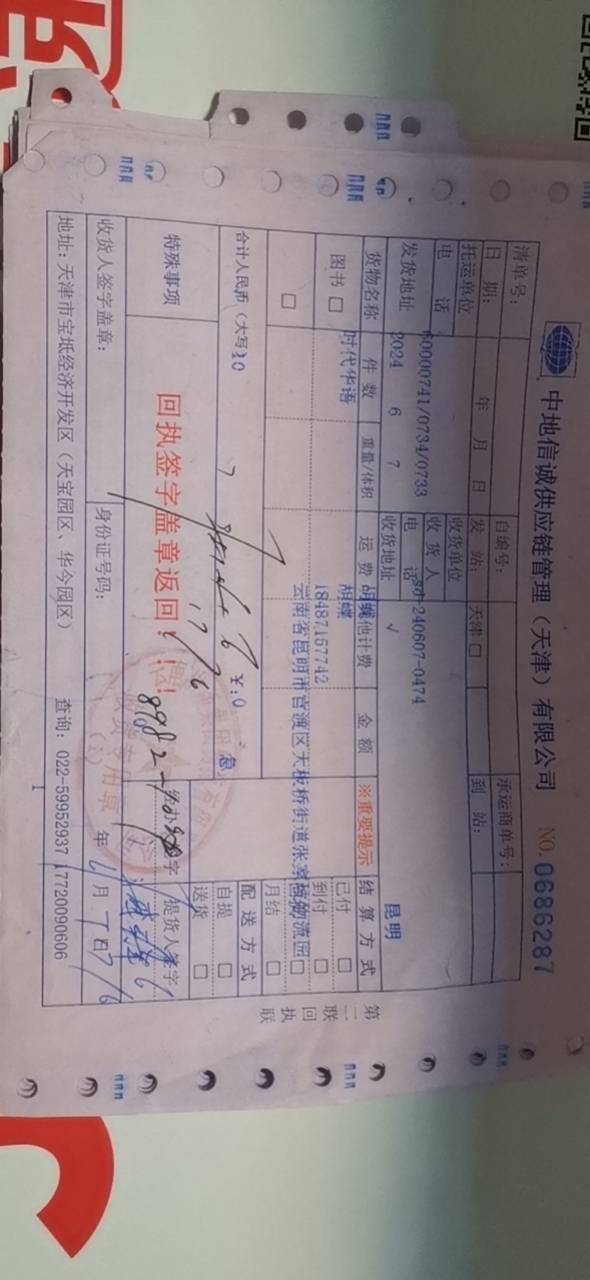 中地信诚供应链管理（天津）有限公司 NO. 0686287
清单号： 自编号： 承运商单号：
日 期： 年 月 日 发 站： 天津 □ 到 站：
托运单位 收货单位
60000741/0734/0733 240607-0474
电 话 收 货 人
发货地址 2024 6 7 电 话 昆明
收货地址 √
货物名称 件 数 重量/体积 运 费 其他计费 金 额 ※重要提示 结 算 方 式
胡蝶
图书 □ 时代华语 18487157742 已付 □
云南省昆明市官渡区大板桥街道张家坡物流园
到付 □
□ 月结 □
合计人民币（大写） 10 ¥：0 急 配 送 方 式
自提 □
送货 □
特殊事项 回执签字盖章返回！！！
17/6
8982 经办人签字 提货人签字
收货人签字盖章： 身份证号码： 年 月 日
地址：天津市宝坻经济开发区（天宝园区、华今园区） 查询：022-59952937 17720090606
第二联 回执联
收货专用章